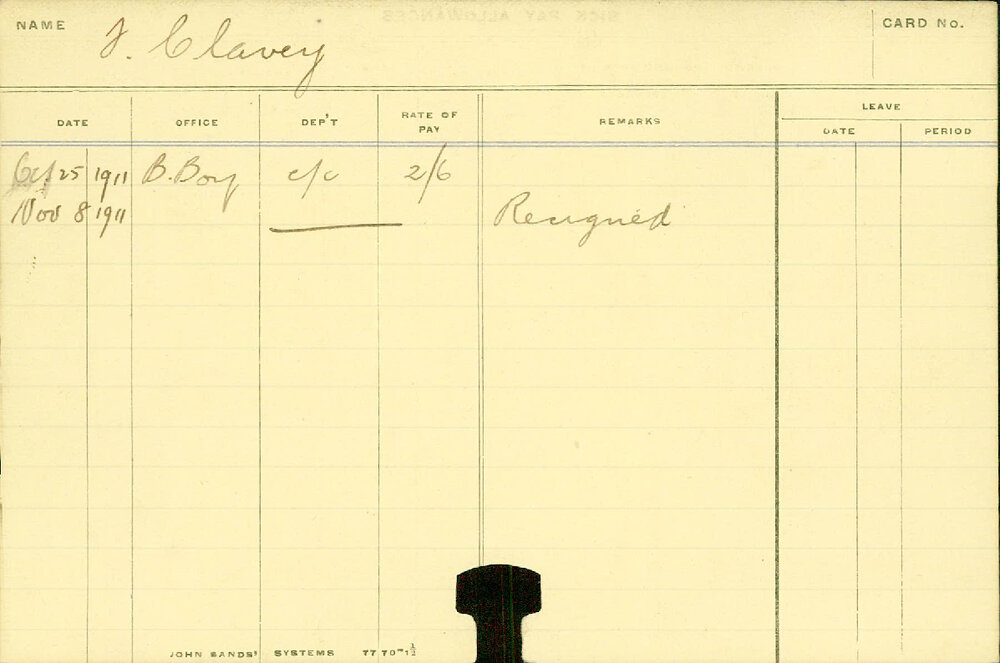 NAME J. Clavey CARD No.
DATE OFFICE DEP'T RATE OF PAY REMARKS LEAVE
DATE PERIOD
Oct 25 1911 B. Boy c/c 2/6
Nov 8 1911 Resigned
JOHN SANDS' SYSTEMS 77 70